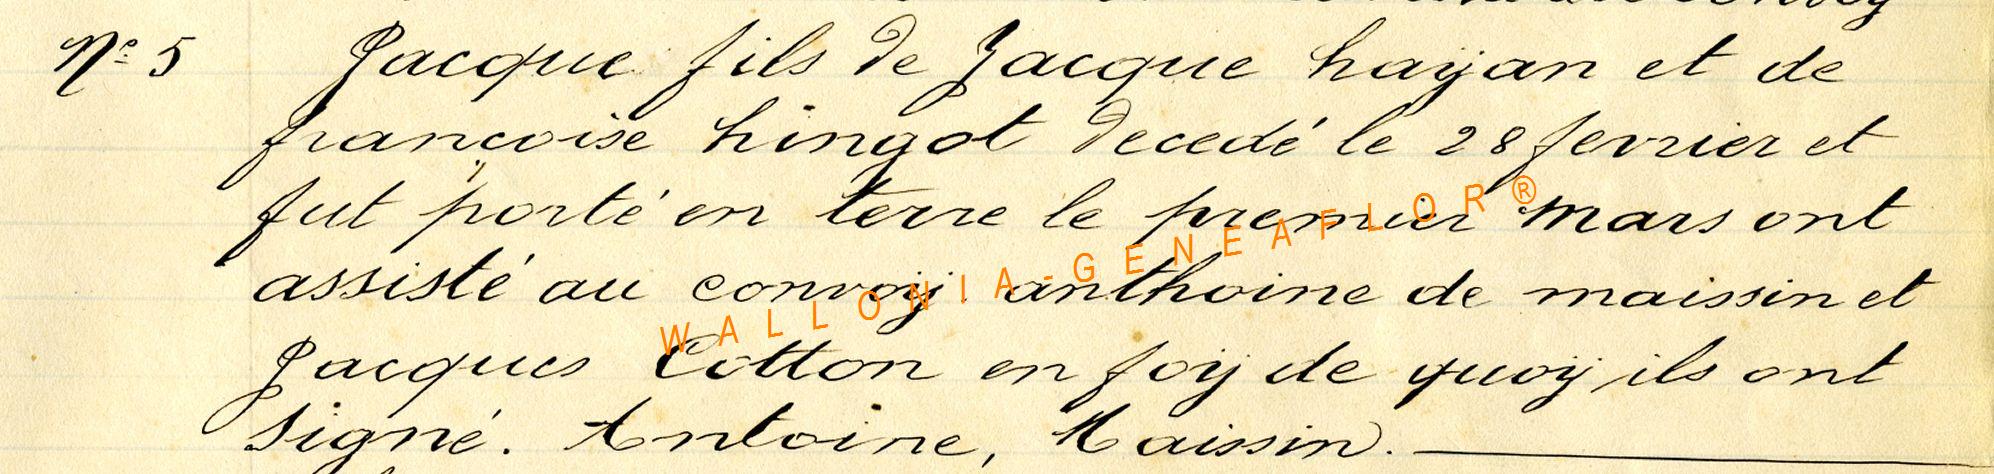 Nº 5 Jacque fils de Jacque hayan et de
francoise hingot decedé le 28 fevrier et
fut porté en terre le premier mars ont
assisté au convoÿ anthoine de maissin et
Jacques Cotton en foÿ de quoÿ ils ont
signé. Antoine, Maissin.
WALLONIA-GENEAFLOR®